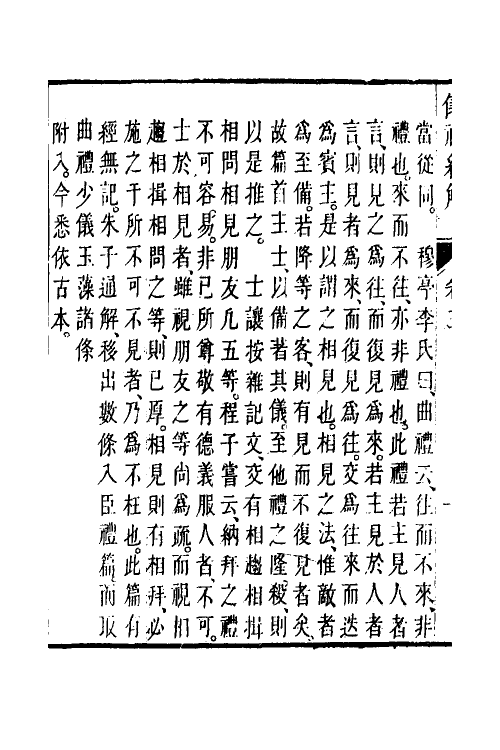 儀禮
卷三
當從同。　穆亭李氏曰、曲禮云、往而不來、非
禮也。來而不往、亦非禮也。此禮若主見人者
言、則見之爲往、而復見爲來。若主見於人者
言、則見者爲來、而復見爲往。交爲往來而迭
爲賓主。是以謂之相見也。相見之法、惟敵者
爲至備。若降等之客、則有見而不復見者矣。
故篇首主士、以備著其儀。至他禮之隆殺、則
以是推之。　士讓按雜記文、交有相趨相揖
相問相見朋友凡五等。程子嘗云、納拜之禮
不可容易。非已所尊敬有德義服人者、不可。
士於相見者、雖視朋友之等尚爲疏。而視相
趨相揖相問之等、則已厚。相見則有相拜、必
施之于所不可不見者、乃爲不枉也。此篇有
經無記。朱子通解、移出數條入臣禮篇、而取
曲禮少儀玉藻諸條
附入。今悉依古本。